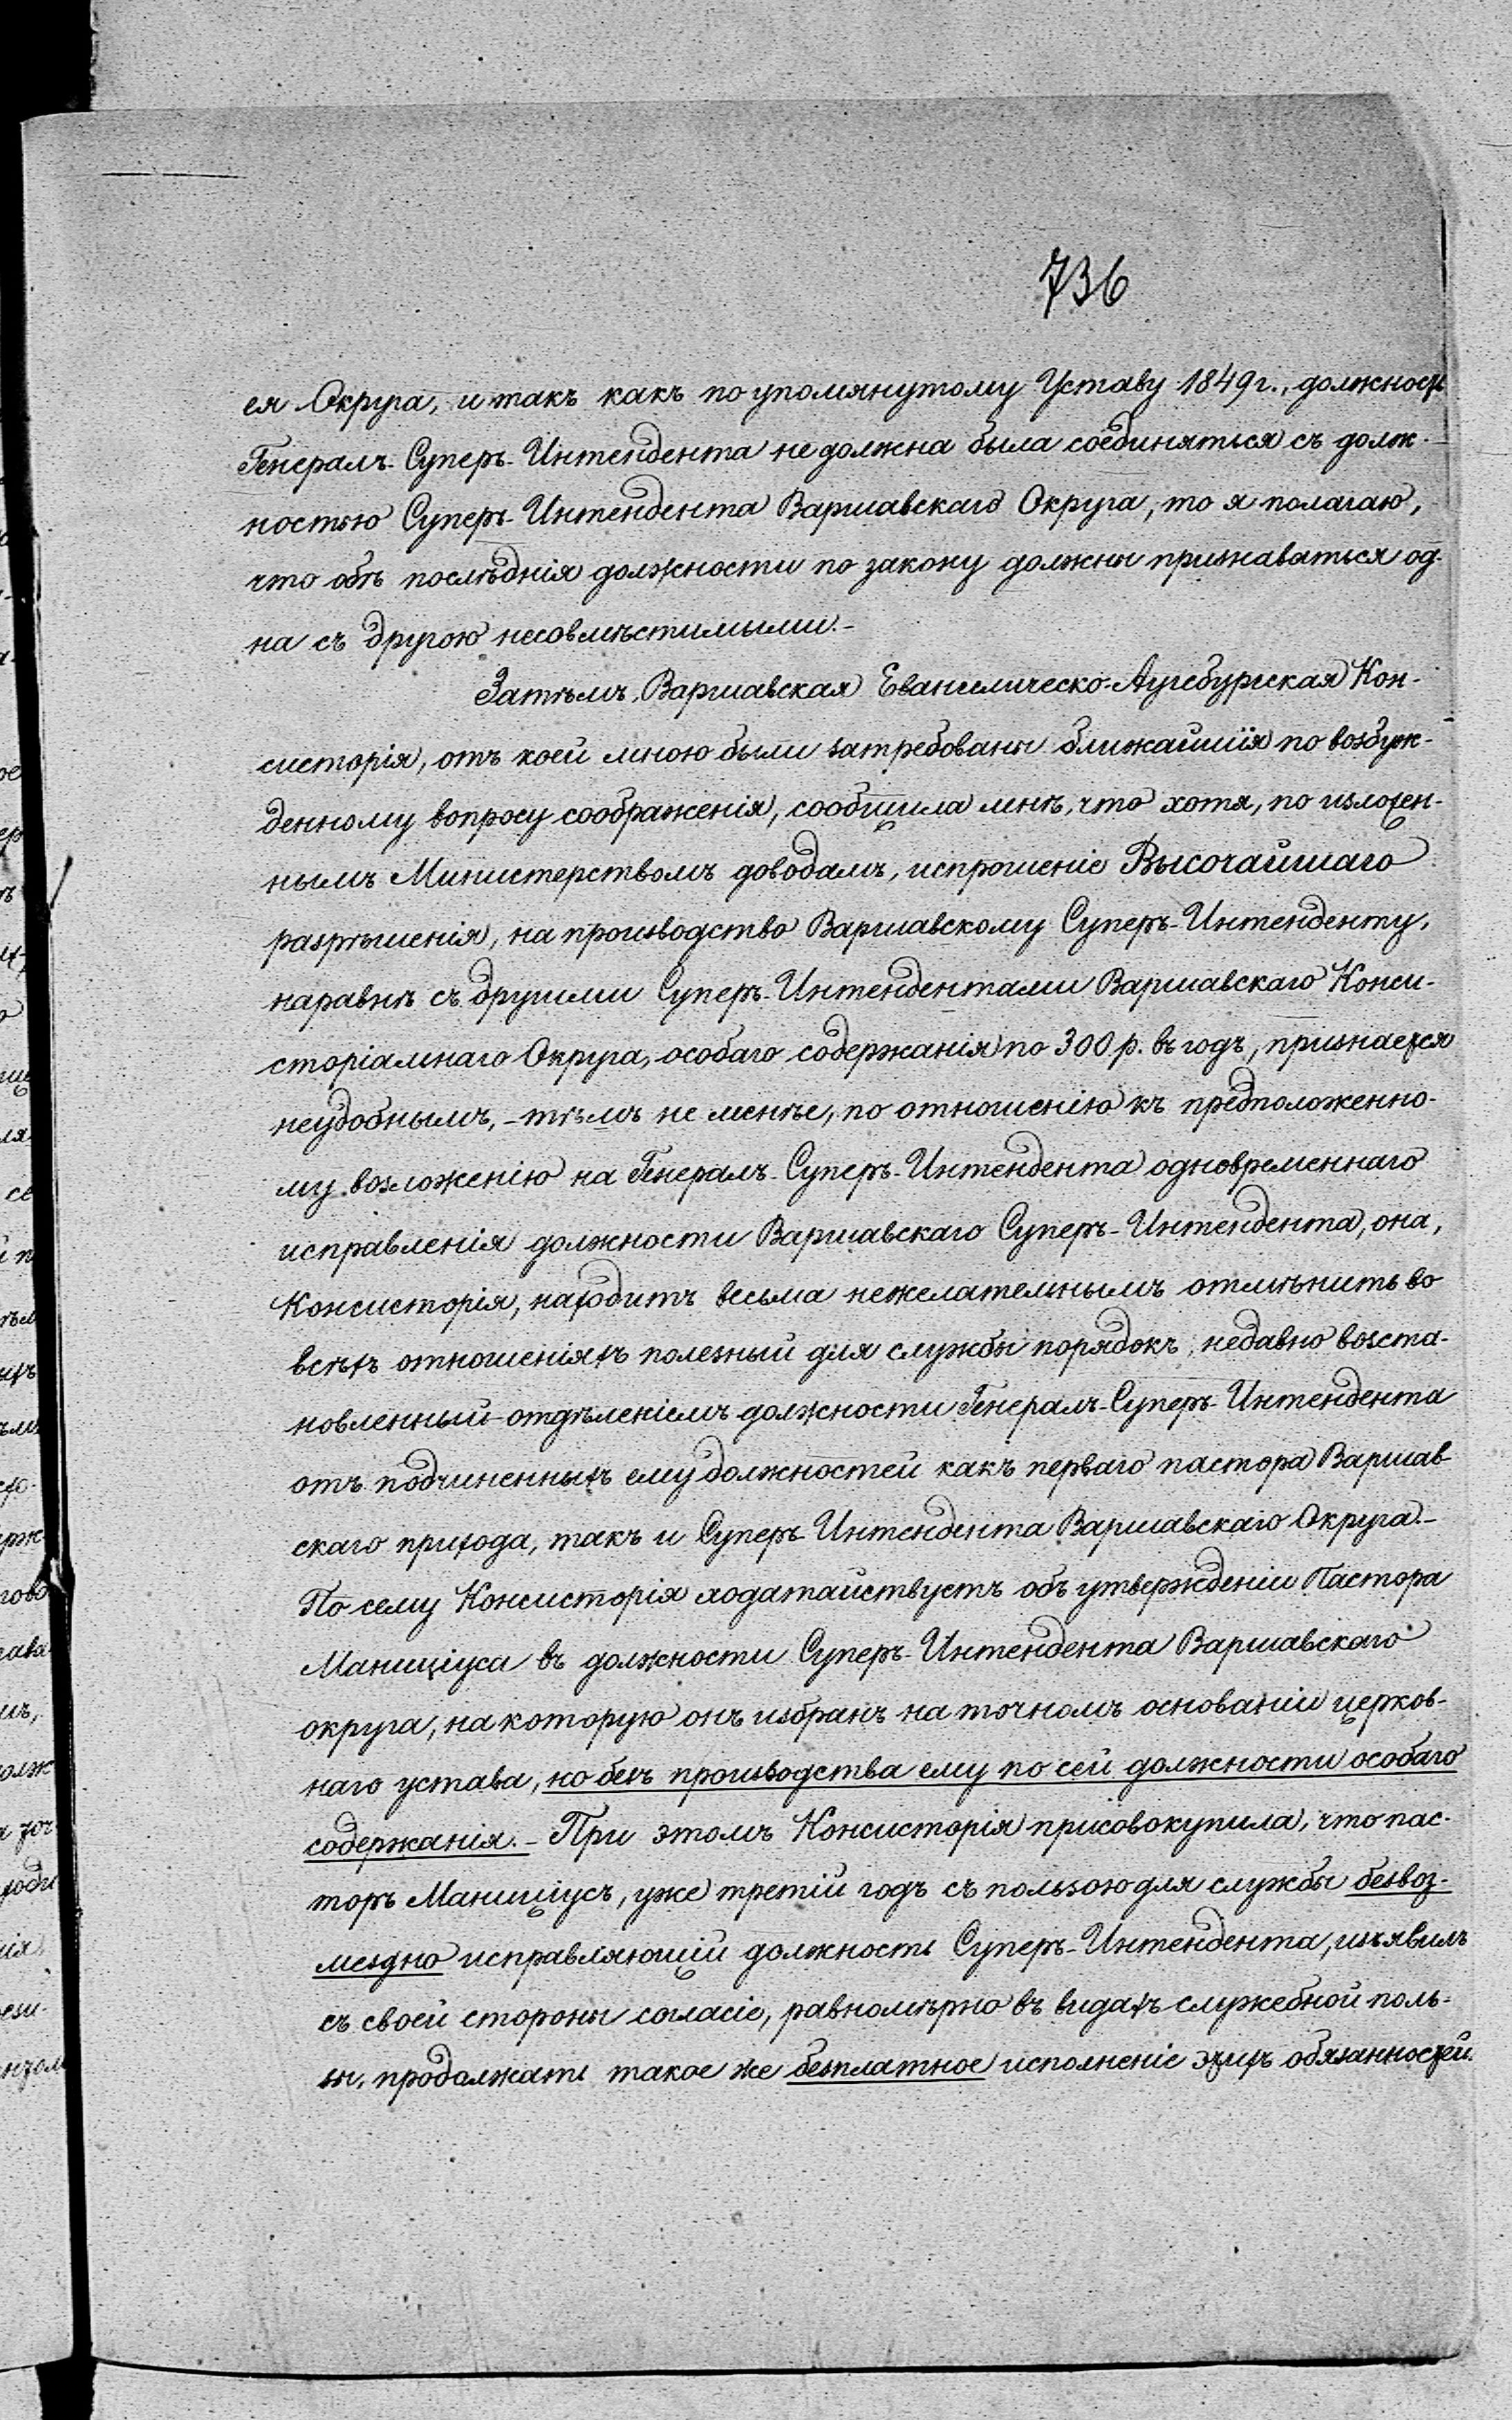 736
ея Округа, и такъ какъ по упомянутому Уставу 1849 г., должность
Генералъ-Суперъ-Интендента не должна была соединяться съ долж-
ностью Суперъ-Интендента Варшавскаго Округа, то я полагаю,
что обѣ послѣднія должности по закону должны признаваться од-
на съ другою несовмѣстимыми.-
Затѣмъ, Варшавская Евангелическо-Аугсбургская Кон-
систорія, отъ коей мною были затребованы ближайшія по возбуж-
денному вопросу соображенія, сообщила мнѣ, что хотя, по изложен-
нымъ Министерствомъ доводамъ, испрошеніе Высочайшаго
разрѣшенія, на производство Варшавскому Суперъ-Интенденту,
наравнѣ съ другими Суперъ-Интендентами Варшавскаго Конси-
сторіальнаго Округа, особаго содержанія по 300 р. въ годъ, признается
неудобнымъ, - тѣмъ не менѣе, по отношенію къ предположенно-
му возложенію на Генералъ-Суперъ-Интендента одновременнаго
исправленія должности Варшавскаго Суперъ-Интендента, она,
Консисторія, находитъ весьма нежелательнымъ отмѣнить во
всѣхъ отношеніяхъ полезный для службы порядокъ, недавно возста-
новленный отдѣленіемъ должности Генералъ-Суперъ-Интендента
отъ подчиненныхъ ему должностей какъ перваго пастора Варшав-
скаго прихода, такъ и Суперъ-Интендента Варшавскаго Округа.-
По сему Консисторія ходатайствуетъ объ утвержденіи Пастора
Маниціуса въ должности Суперъ-Интендента Варшавскаго
округа, на которую онъ избранъ на точномъ основаніи церков-
наго устава, но безъ производства ему по сей должности особаго
содержанія.- При этомъ Консисторія присовокупила, что пас-
торъ Маниціусъ, уже третій годъ съ пользою для службы безвоз-
мездно исправляющій должность Суперъ-Интендента, изъявилъ
съ своей стороны согласіе, равномѣрно въ видахъ служебной поль-
зы, продолжать такое же безплатное исполненіе этихъ обязанностей.